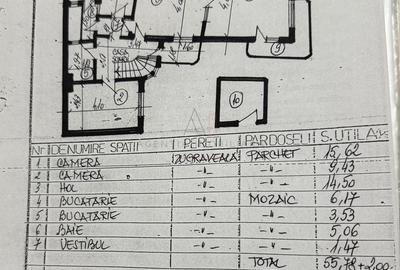 9
CASA
SCARII
2
10
Nr DENUMIRE SPATII PERETI PARDOSELI S.UTILA
1 CAMERA ZUGRAVEALA PARCHET 15,62
2 CAMERA -"- -"- 9,43
3 HOL -"- -"- 14,50
4 BUCATARIE -"- MOZAIC 6,17
5 BUCATARIE -"- -"- 3,53
6 BAIE -"- -"- 5,06
7 VESTIBUL -"- -"- 1,47
TOTAL 55,78+2,00